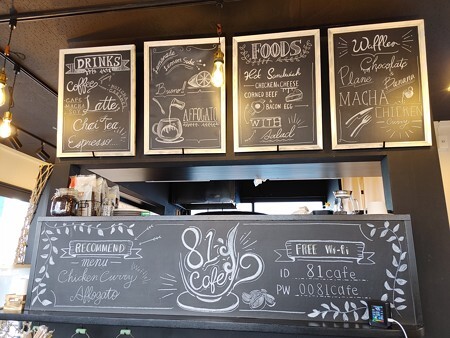 DRINKS
Coffee
Latte
Chai Tea
Espresso
Homemade
Lemon Soda
Bueno!
AFFOGATO
FOODS
Hot Sandwich
CHICKEN & CHEESE
CORNED BEEF
BACON EGG
WITH
Salad
Waffles
Chocolate
Plane
Banana
MACHA
CHICKEN
RECOMMEND
menu
Chicken Curry
Affogato
81's
Cafe
FREE Wi-Fi
ID 81cafe
PW 0081cafe